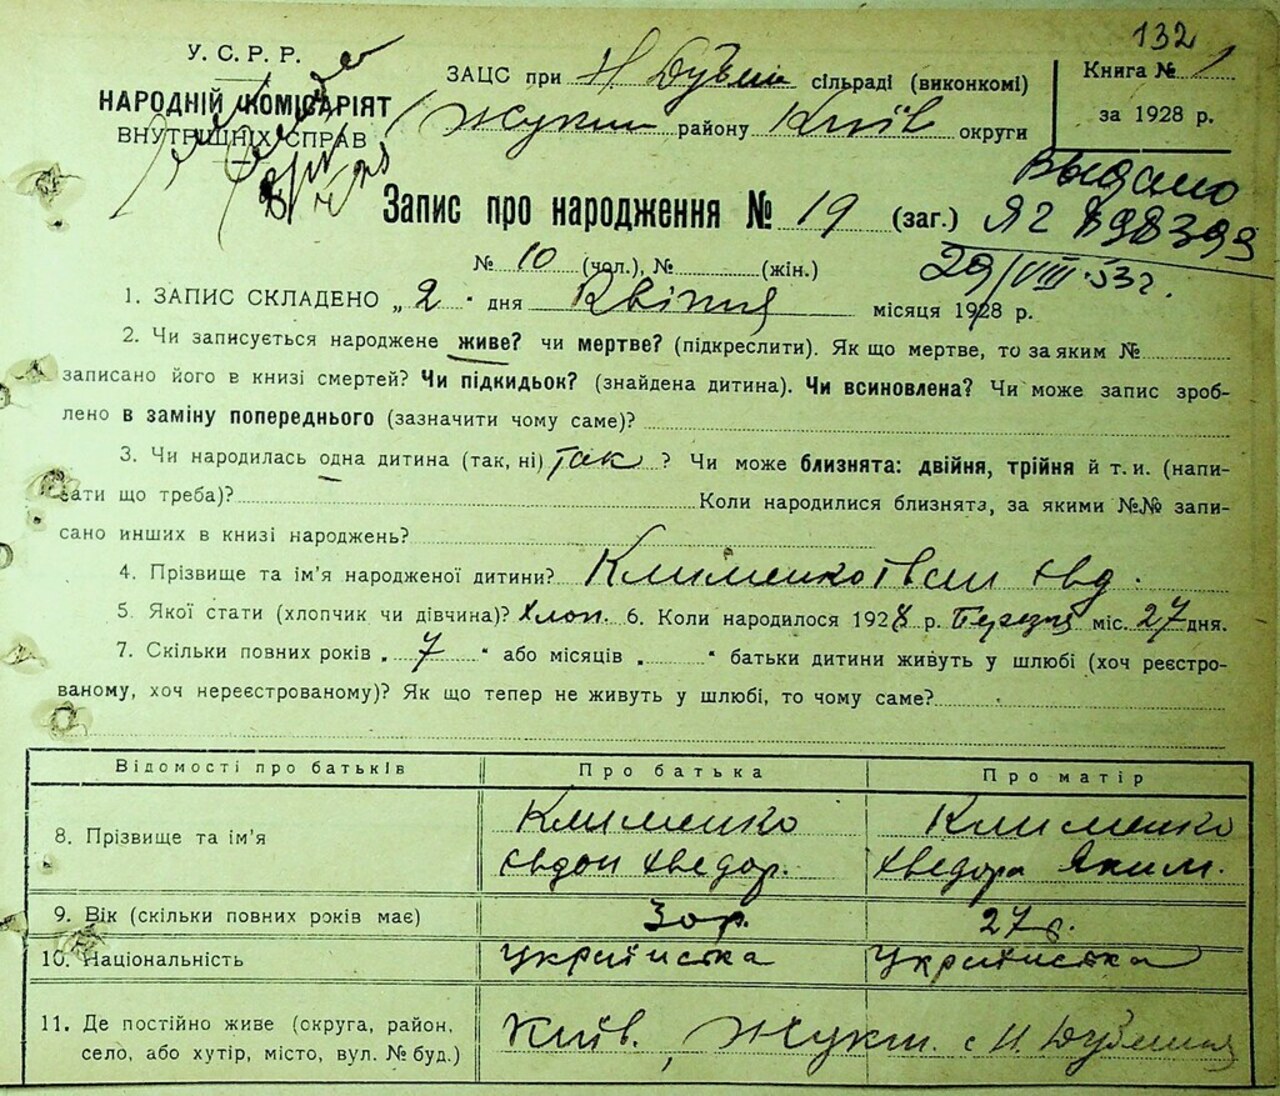 132
У. С. Р. Р.
НАРОДНІЙ КОМІСАРІЯТ
ВНУТРІШНІХ СПРАВ
ЗАЦС при Н Дубеш сільраді (виконкомі)
Жукин району Київ округи
Книга № 1
за 1928 р.
Выдано
Запис про народження № 19 (заг.)
ЯГ 898399
29/VIII-53г.
№ 10 (чол.), № (жін.)
1. ЗАПИС СКЛАДЕНО „2" дня Квітня місяця 1928 р.
2. Чи записується народжене живе? чи мертве? (підкреслити). Як що мертве, то за яким №
записано його в книзі смертей? Чи підкидьок? (знайдена дитина). Чи всиновлена? Чи може запис зроб-
лено в заміну попереднього (зазначити чому саме)?
3. Чи народилась одна дитина (так, ні) так? Чи може близнята: двійня, трійня й т. и. (напи-
сати що треба)? Коли народилися близнята, за якими №№ запи-
сано инших в книзі народжень?
4. Прізвище та ім'я народженої дитини? Клименко Іван Євд.
5. Якої стати (хлопчик чи дівчина)? Хлоп. 6. Коли народилось 1928 р. Березня міс. 27 дня.
7. Скільки повних років „7" або місяців „ " батьки дитини живуть у шлюбі (хоч реєстро-
ваному, хоч нереєстрованому)? Як що тепер не живуть у шлюбі, то чому саме?
Відомості про батьків Про батька Про матір
8. Прізвище та ім'я Клименко Клименко
Євдок Хведор. Хведора Яким.
9. Вік (скільки повних років має) 30 р. 27 р.
10. Національність українська українська
11. Де постійно живе (округа, район, село, або хутір, місто, вул. № буд.) Київ., Жукин. с Н.